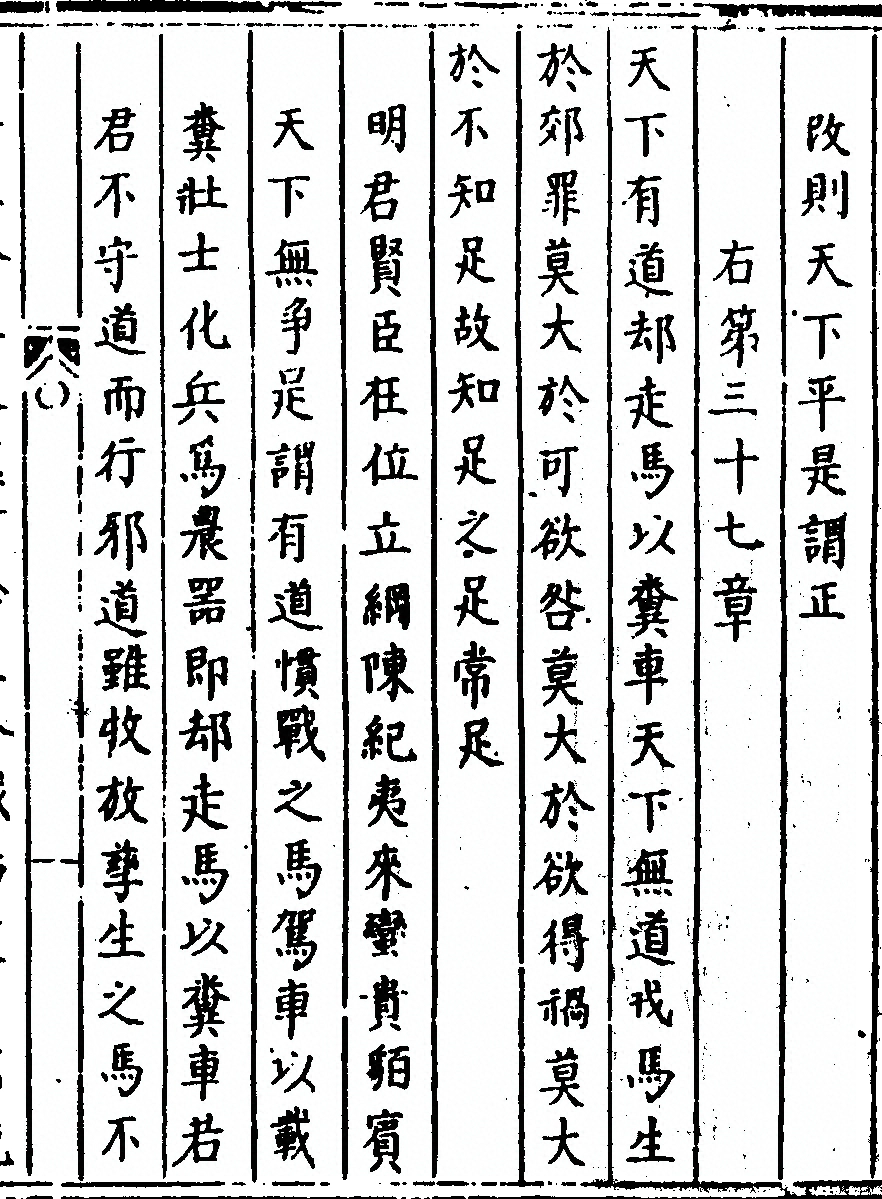 改則天下平是謂正
右第三十七章
天下有道却走馬以糞車天下無道戎馬生
於郊罪莫大於可欲咎莫大於欲得禍莫大
於不知足故知足之足常足
明君賢臣在位立綱陳紀夷來蠻貴貊賓
天下無爭足謂有道慣戰之馬駕車以載
糞壯士化兵爲農器即却走馬以糞車若
君不守道而行邪道雖牧放孳生之馬不